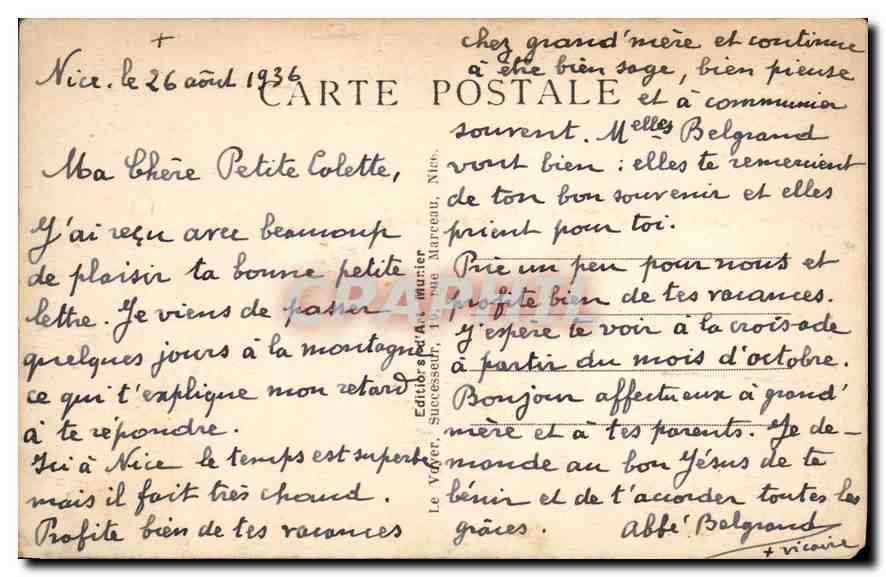 +
Nice, le 26 août 1936
CARTE POSTALE
Ma Chère Petite Colette,
J'ai reçu avec beaucoup
de plaisir ta bonne petite
lettre. Je viens de passer
quelques jours à la montagne
ce qui t'explique mon retard
à te répondre.
Ici à Nice le temps est superbe
mais il fait très chaud.
Profite bien de tes vacances
Editions d'Art Munier
Le Voyer, Successeur, 10, rue Marceau, Nice.
chez grand'mère et continue
à être bien sage, bien pieuse
et à communier
souvent. Melles Belgrand
vont bien : elles te remercient
de ton bon souvenir et elles
prient pour toi.
Prie un peu pour nous et
profite bien de tes vacances.
J'espère te voir à la croisade
à partir du mois d'octobre.
Bonjour affectueux à grand'
mère et à tes parents. Je de-
mande au bon Jésus de te
bénir et de t'accorder toutes les
grâces. Abbé Belgrand
+ vicaire